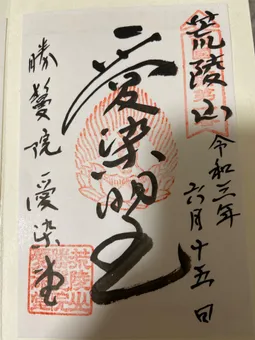 荒陵山
令和三年
六月十五日
愛染明王
勝鬘院 愛染堂